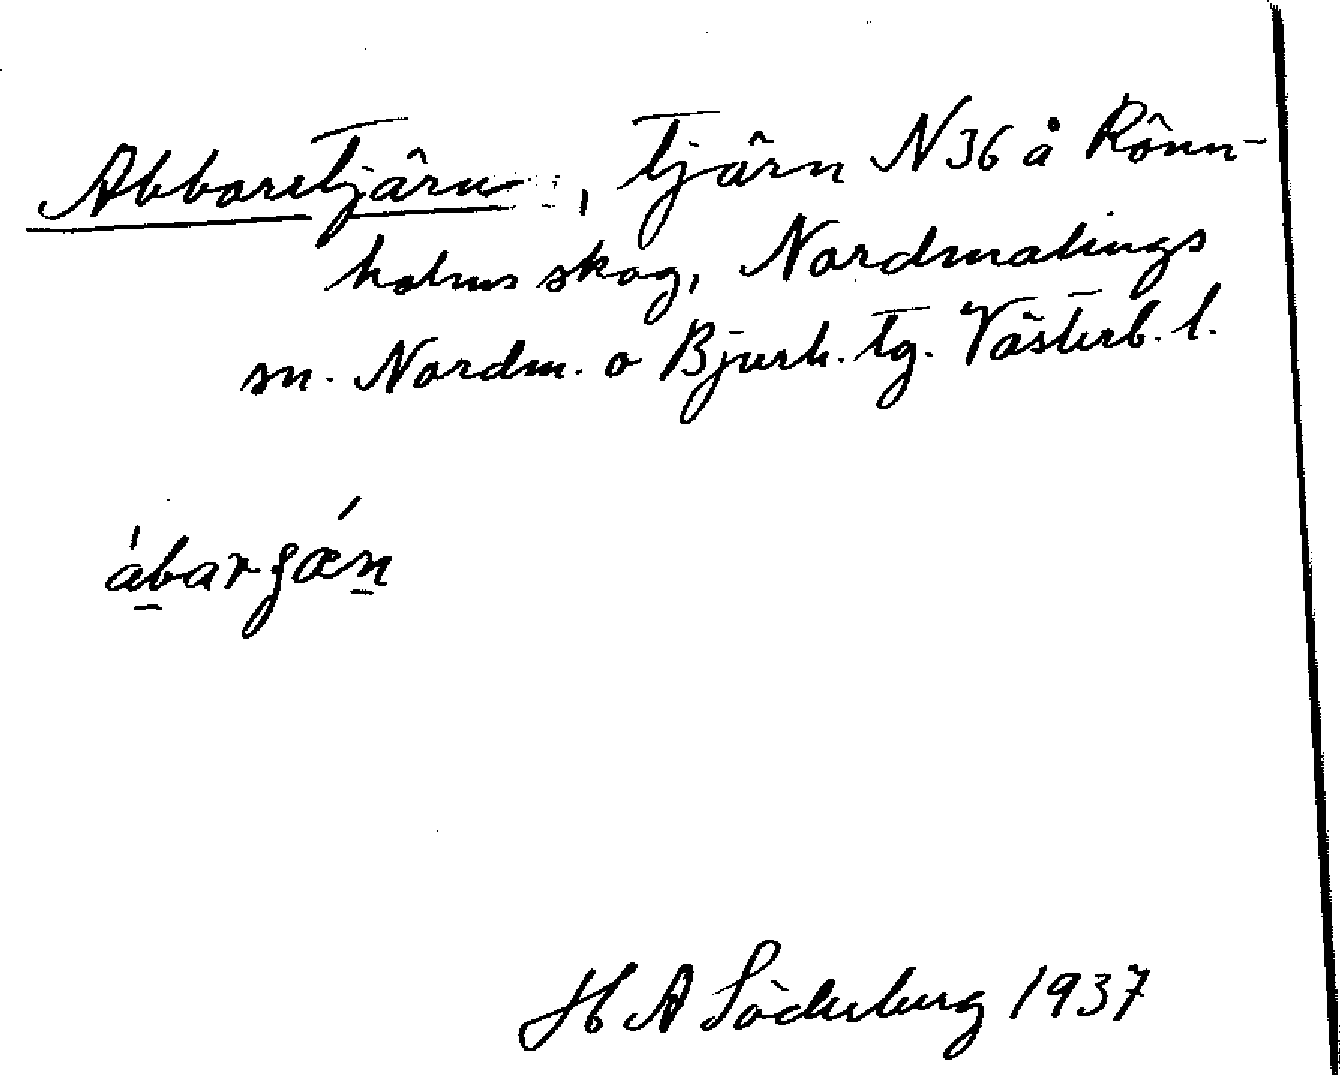 Abborrtjärn, tjärn N36 å Rönn-
holms skog, Nordmalings
sn. Nordm. o Bjurh. tg. Västerb. l.
ábarʃǽn
H A Söderberg 1937